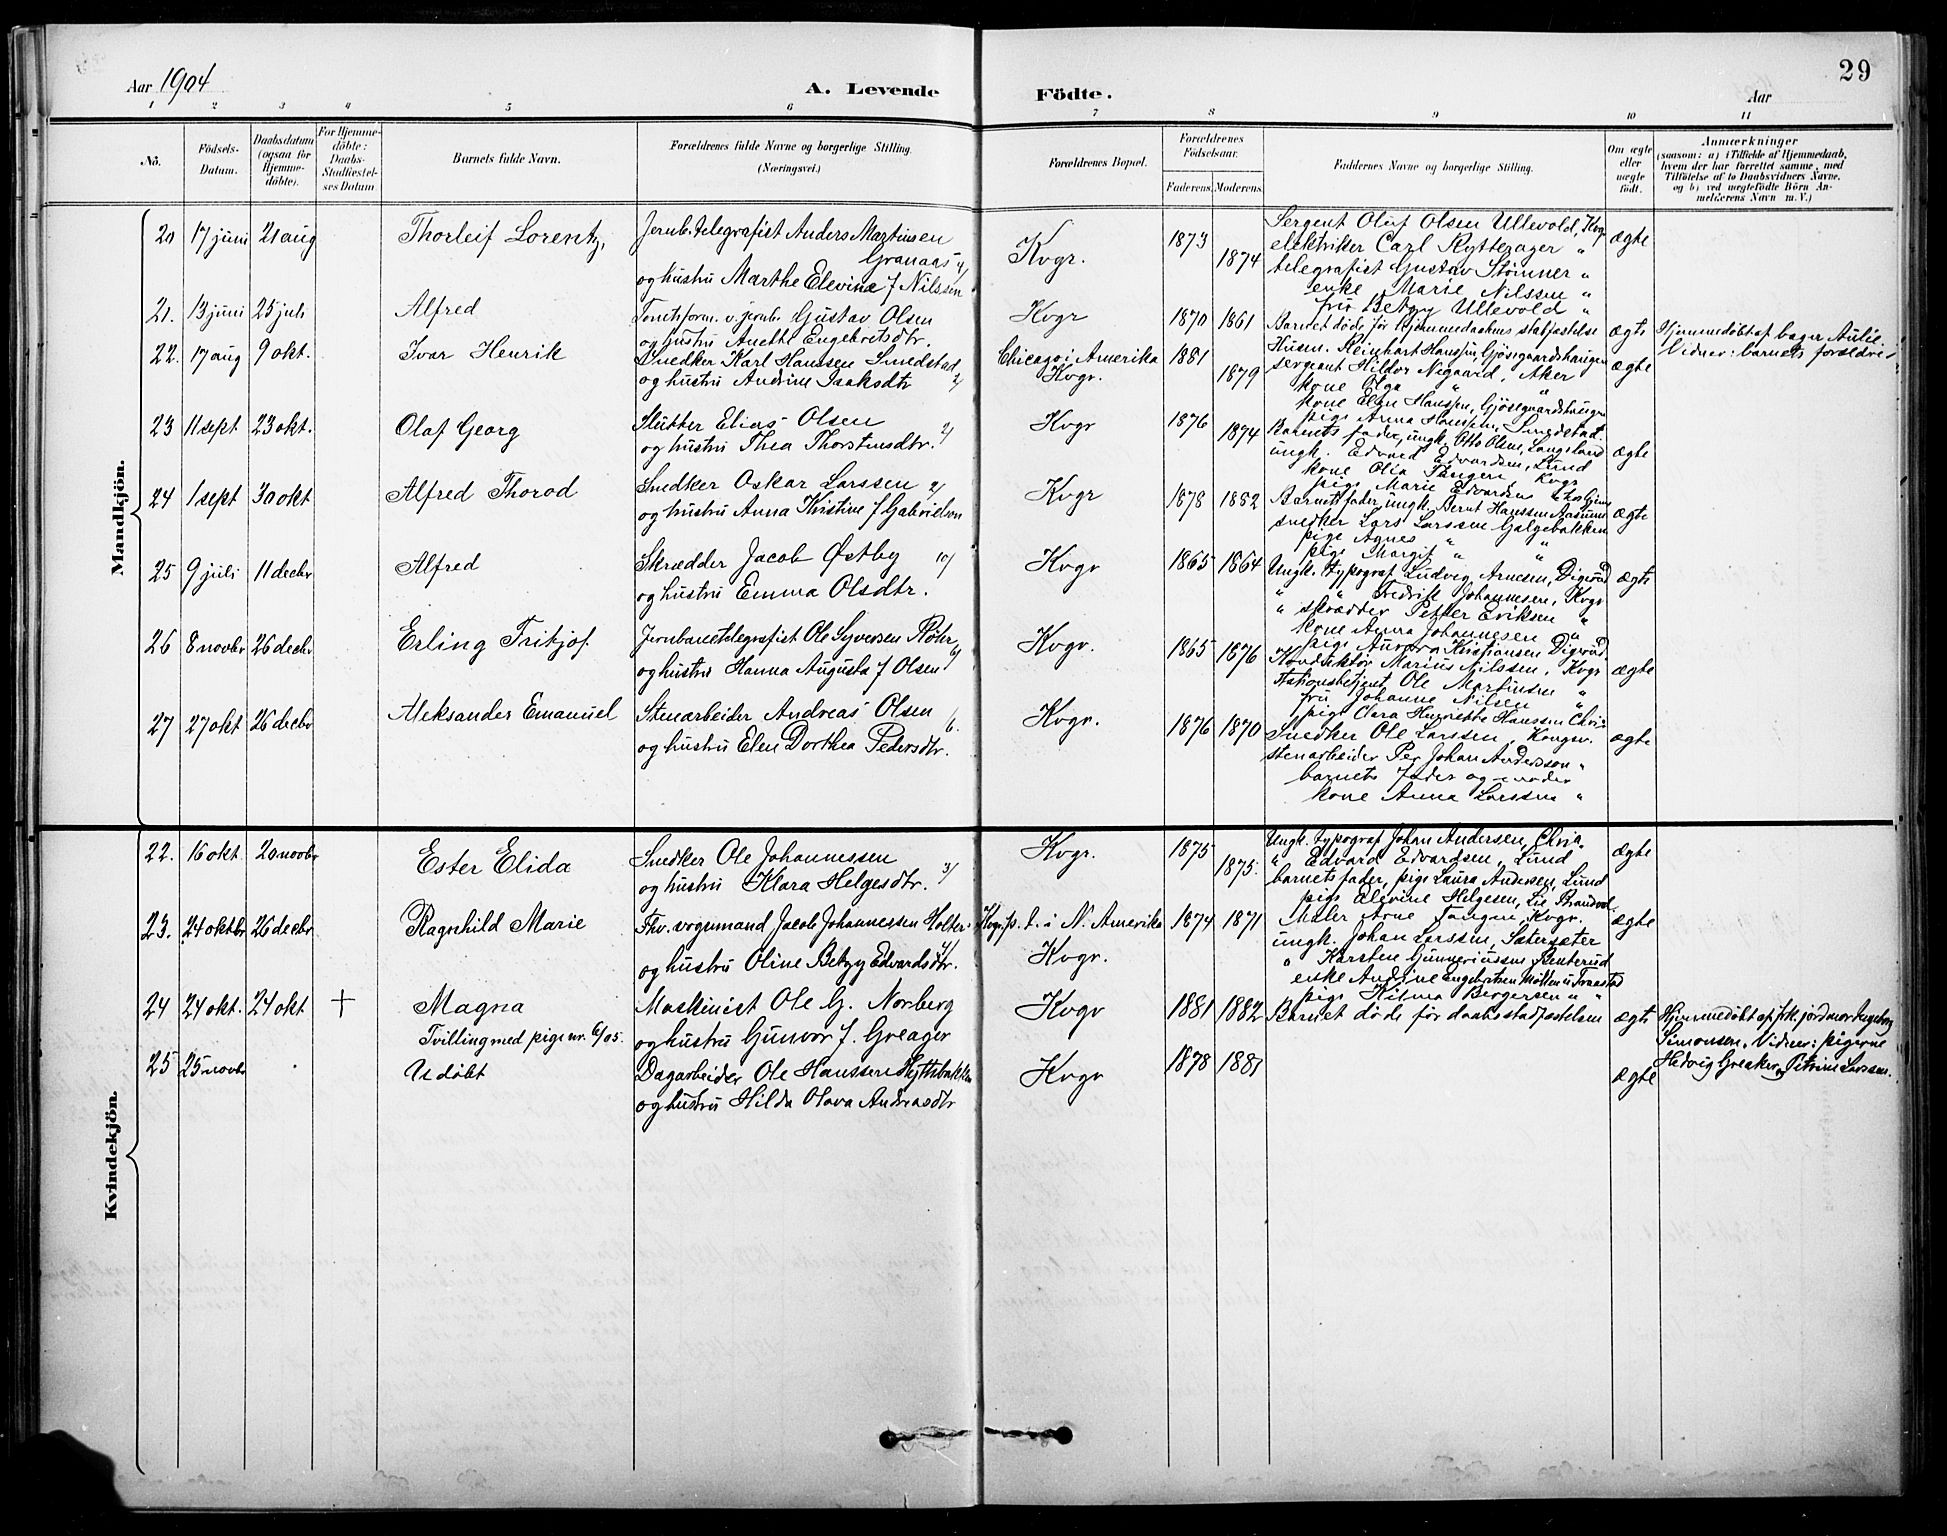 29
Aar 1904
A. Levende Födte.
Aar
1 2 3 4 5 6 7 8 9 10 11
Nö.
Födsels-
Datum.
Daabsdatum
(ogsaa for
Hjemme-
döbte).
For Hjemme-
döbte:
Daabs-
Stadfæstel-
ses Datum
Barnets fulde Navn.
Forældrenes fulde Navne og borgerlige Stilling.
(Næringsvei.)
Forældrenes Bopæl.
Forældrenes
Födselsaar.
Faderens. Moderens.
Faddernes Navne og borgerlige Stilling.
Om ægte
eller
uægte
födt.
Anmærkninger
(saasom: a) i Tilfælde af Hjemmedaab,
hvem der har forrettet samme, med
Tilföielse af to Daabsvidners Navne,
og b) ved uægtefödte Börn An-
melderens Navn m. V.)
Mandkjön.
20 17 juni 21 aug Thorleif Lorentz,
Jernb. telegrafist Anders Martinsen
Granaas
og hustru Marthe Elevine f Nilssen
Kvgr. 1873 1874
Sergent Oluf Olsen Ullevold, Kvgr
elektriker Carl Rytterager "
telegrafist Gustav Stömner "
enke Marie Nilssen "
fru Betzy Ullevold "
ægte
21. 13 juni 25 juli Alfred
Tomteform. v. jernb. Gustav Olsen
og hustru Anethe Engebretsdtr.
Kvgr 1870 1861
Barnet døde før hjemmedaabens stadfæstelse
ægte
Hjemmedøbt af bager Aulie.
Vidner: barnets forældre
22. 17 aug 9 okt. Ivar Henrik
Snedker Karl Hanssen Smedstad
og hustru Andrine Isaksdtr 2/
Chicago i Amerika
Kvgr.
1881 1879
Husm. Reinhart Hanssen, Gjøsegaardshaugen
sergeant Hildor Negaard, Aker
kone Olga " "
kone Elen Hanssen, Gjösegaardshaugen
pige Anna Hanssen, Smedstad.
ægte
23 11 sept 23 okt. Olaf Georg
Slutter Elias Olsen
og hustru Thea Thorstensdtr. 2/
Kvgr 1876 1874
Barnets fader, ungk. Otto Olsen, Langeland
ungk. Edvard Edvardsen, Lund
kone Olia Tangen, Kvgr
pige Marie Edvardsen
ægte
24 1 sept 30 okt Alfred Thorod
Snedker Oskar Larssen 2/
og hustru Anna Kristine f Gabrielsen
Kvgr 1878 1882
Barnets fader, ungk. Bernt Hanssen Aasum
snedker Lars Larssen Galgebakken
pige Agnes " "
pige Margit " "
ægte
25 9 juli 11 decbr Alfred
Skrædder Jacob Østby 10/
og hustru Emma Olsdtr.
Kvgr 1865 1864
Ungk. typograf Ludvig Arnesen, Digerud
" " Fredrik Johannesen, Kvgr
" skrædder Petter Eriksen "
kone Anna Johannesen "
pige Aurora Kristiansen Digerud.
ægte
26 8 novbr 26 decbr Erling Fritjof
Jernbanetelegrafist Ole Syversen Röhr
og hustru Hanna Augusta f Olsen 6/
Kvgr. 1865 1876
Konduktör Marius Nilssen, Kvgr
Stationsbetjent Ole Martinsen "
fru Johanne Nilsen "
pige Clara Henriette Hanssen Chria
ægte
27 27 okt 26 decbr Aleksander Emanuel
Stenarbeider Andreas Olsen 6.
og hustru Elen Dorthea Pedersdtr.
Kvgr. 1876 1870
Snedker Ole Larssen, Kongsv.
stenarbeider Per Johan Andersson "
barnets fader og moder
kone Anna Larssen "
ægte
Kvindekjön.
22. 16 okt. 20 novbr Ester Elida
Snedker Ole Johannessen
og hustru Klara Helgesdtr. 3/
Kvgr. 1875 1875.
Ungk. typograf Johan Andersen, Chria.
" Edvard Edvardsen, Lund
barnets fader, pige Laura Andersen, Lund
pige Elevine Helgesen, Lie Brandvol
ægte
23. 24 oktbr 26 decbr Ragnhild Marie
Fhv. vognmand Jacob Johannessen Holter
og hustru Oline Betzy Edvardsdtr.
Kvgr. p. t. i N. Amerika
Kvgr.
1874 1871
Maler Arne Tangen, Kvgr.
ungk. Johan Larssen, Sætersæter
" Karsten Gunneriussen Benterud
enke Andrine Engebretsen
pige Hilma Bergersen " "
ægte
24 24 okt. 24 okt + Magna
Tvilling med pige nr. 6/05.
Maskinist Ole G. Norberg
og hustru Gunvor f. Greager
Kvgr 1881 1882
Barnet døde før daabsstadfæstelsen
ægte
Hjemmedøbt af frk. jordmor Ingeborg
Simonsen. Vidner: pigerne
Hedvig Greaker, Petrine Larssen.
25 25 novbr Udøbt
Dagarbeider Ole Hanssen Flyttebakken
og hustru Hilda Olava Andreasdtr
Kvgr 1878 1881
ægte